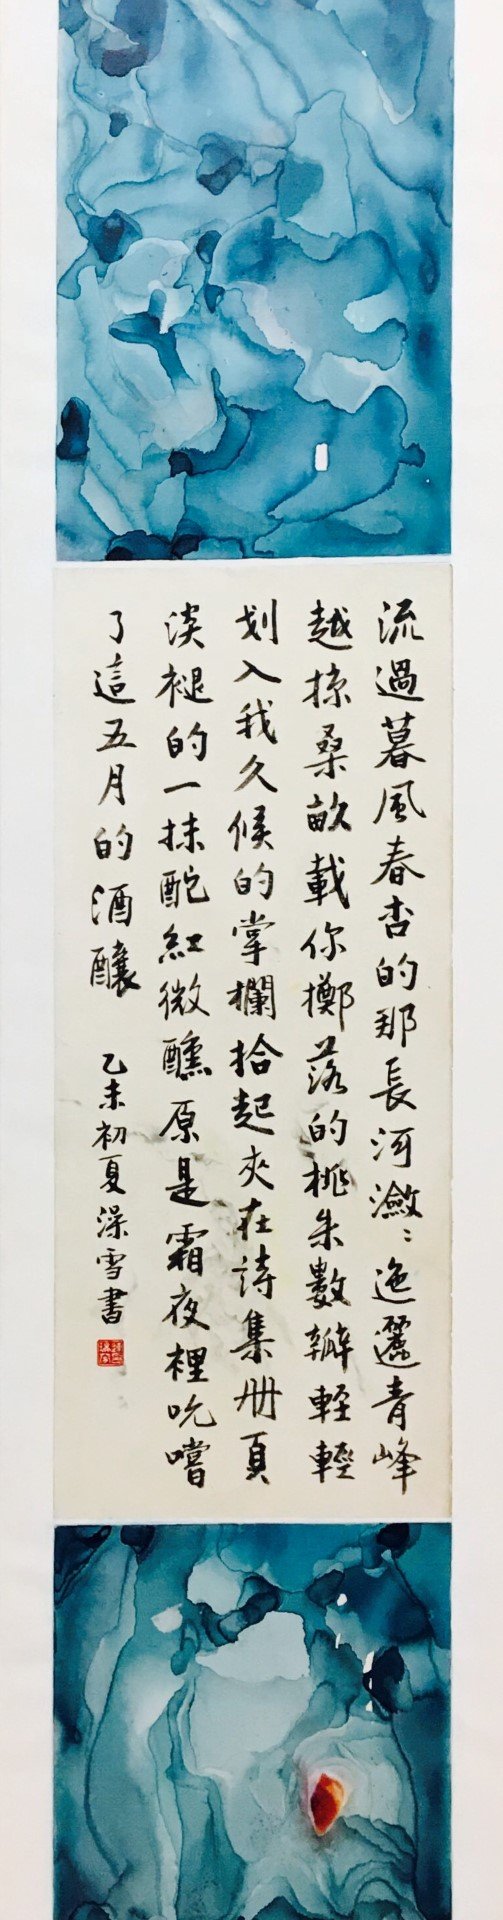 流過暮風春杏的那長河瀲〻迤邐青峰
越掠桑畝載你擲落的桃朱數瓣輕輕
划入我久候的掌欄拾起夾在詩集冊頁
淡褪的一抹酡紅微醺原是霜夜裡吮嚐
了這五月的酒釀
乙未初夏澡雪書